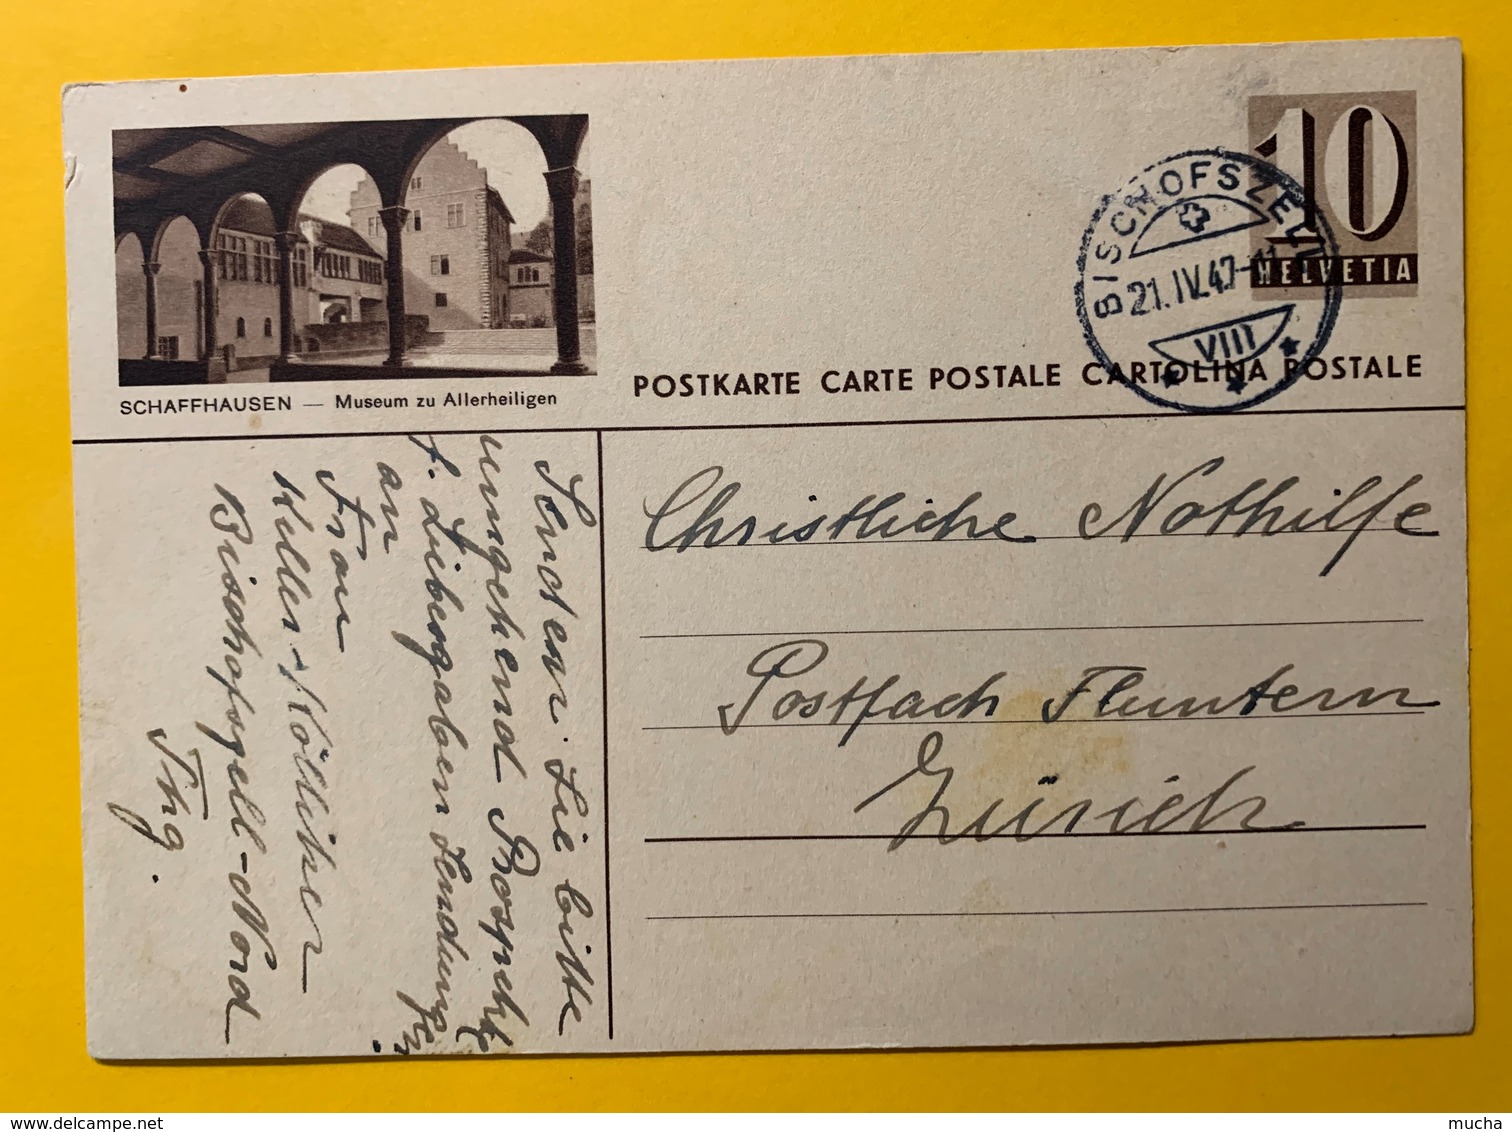 10
HELVETIA
BISCHOFSZELL
21.IV.47-11
VIII
SCHAFFHAUSEN — Museum zu Allerheiligen
POSTKARTE CARTE POSTALE CARTOLINA POSTALE
Christliche Nothilfe
Postfach Fluntern
Zürich
Senden Sie bitte
umgehend Prospekte
f. Liebesgaben Sendungen
an
Frau
Keller-Kölliker
Bischofszell-Nord
Thg.
www.delcampe.net
mucha